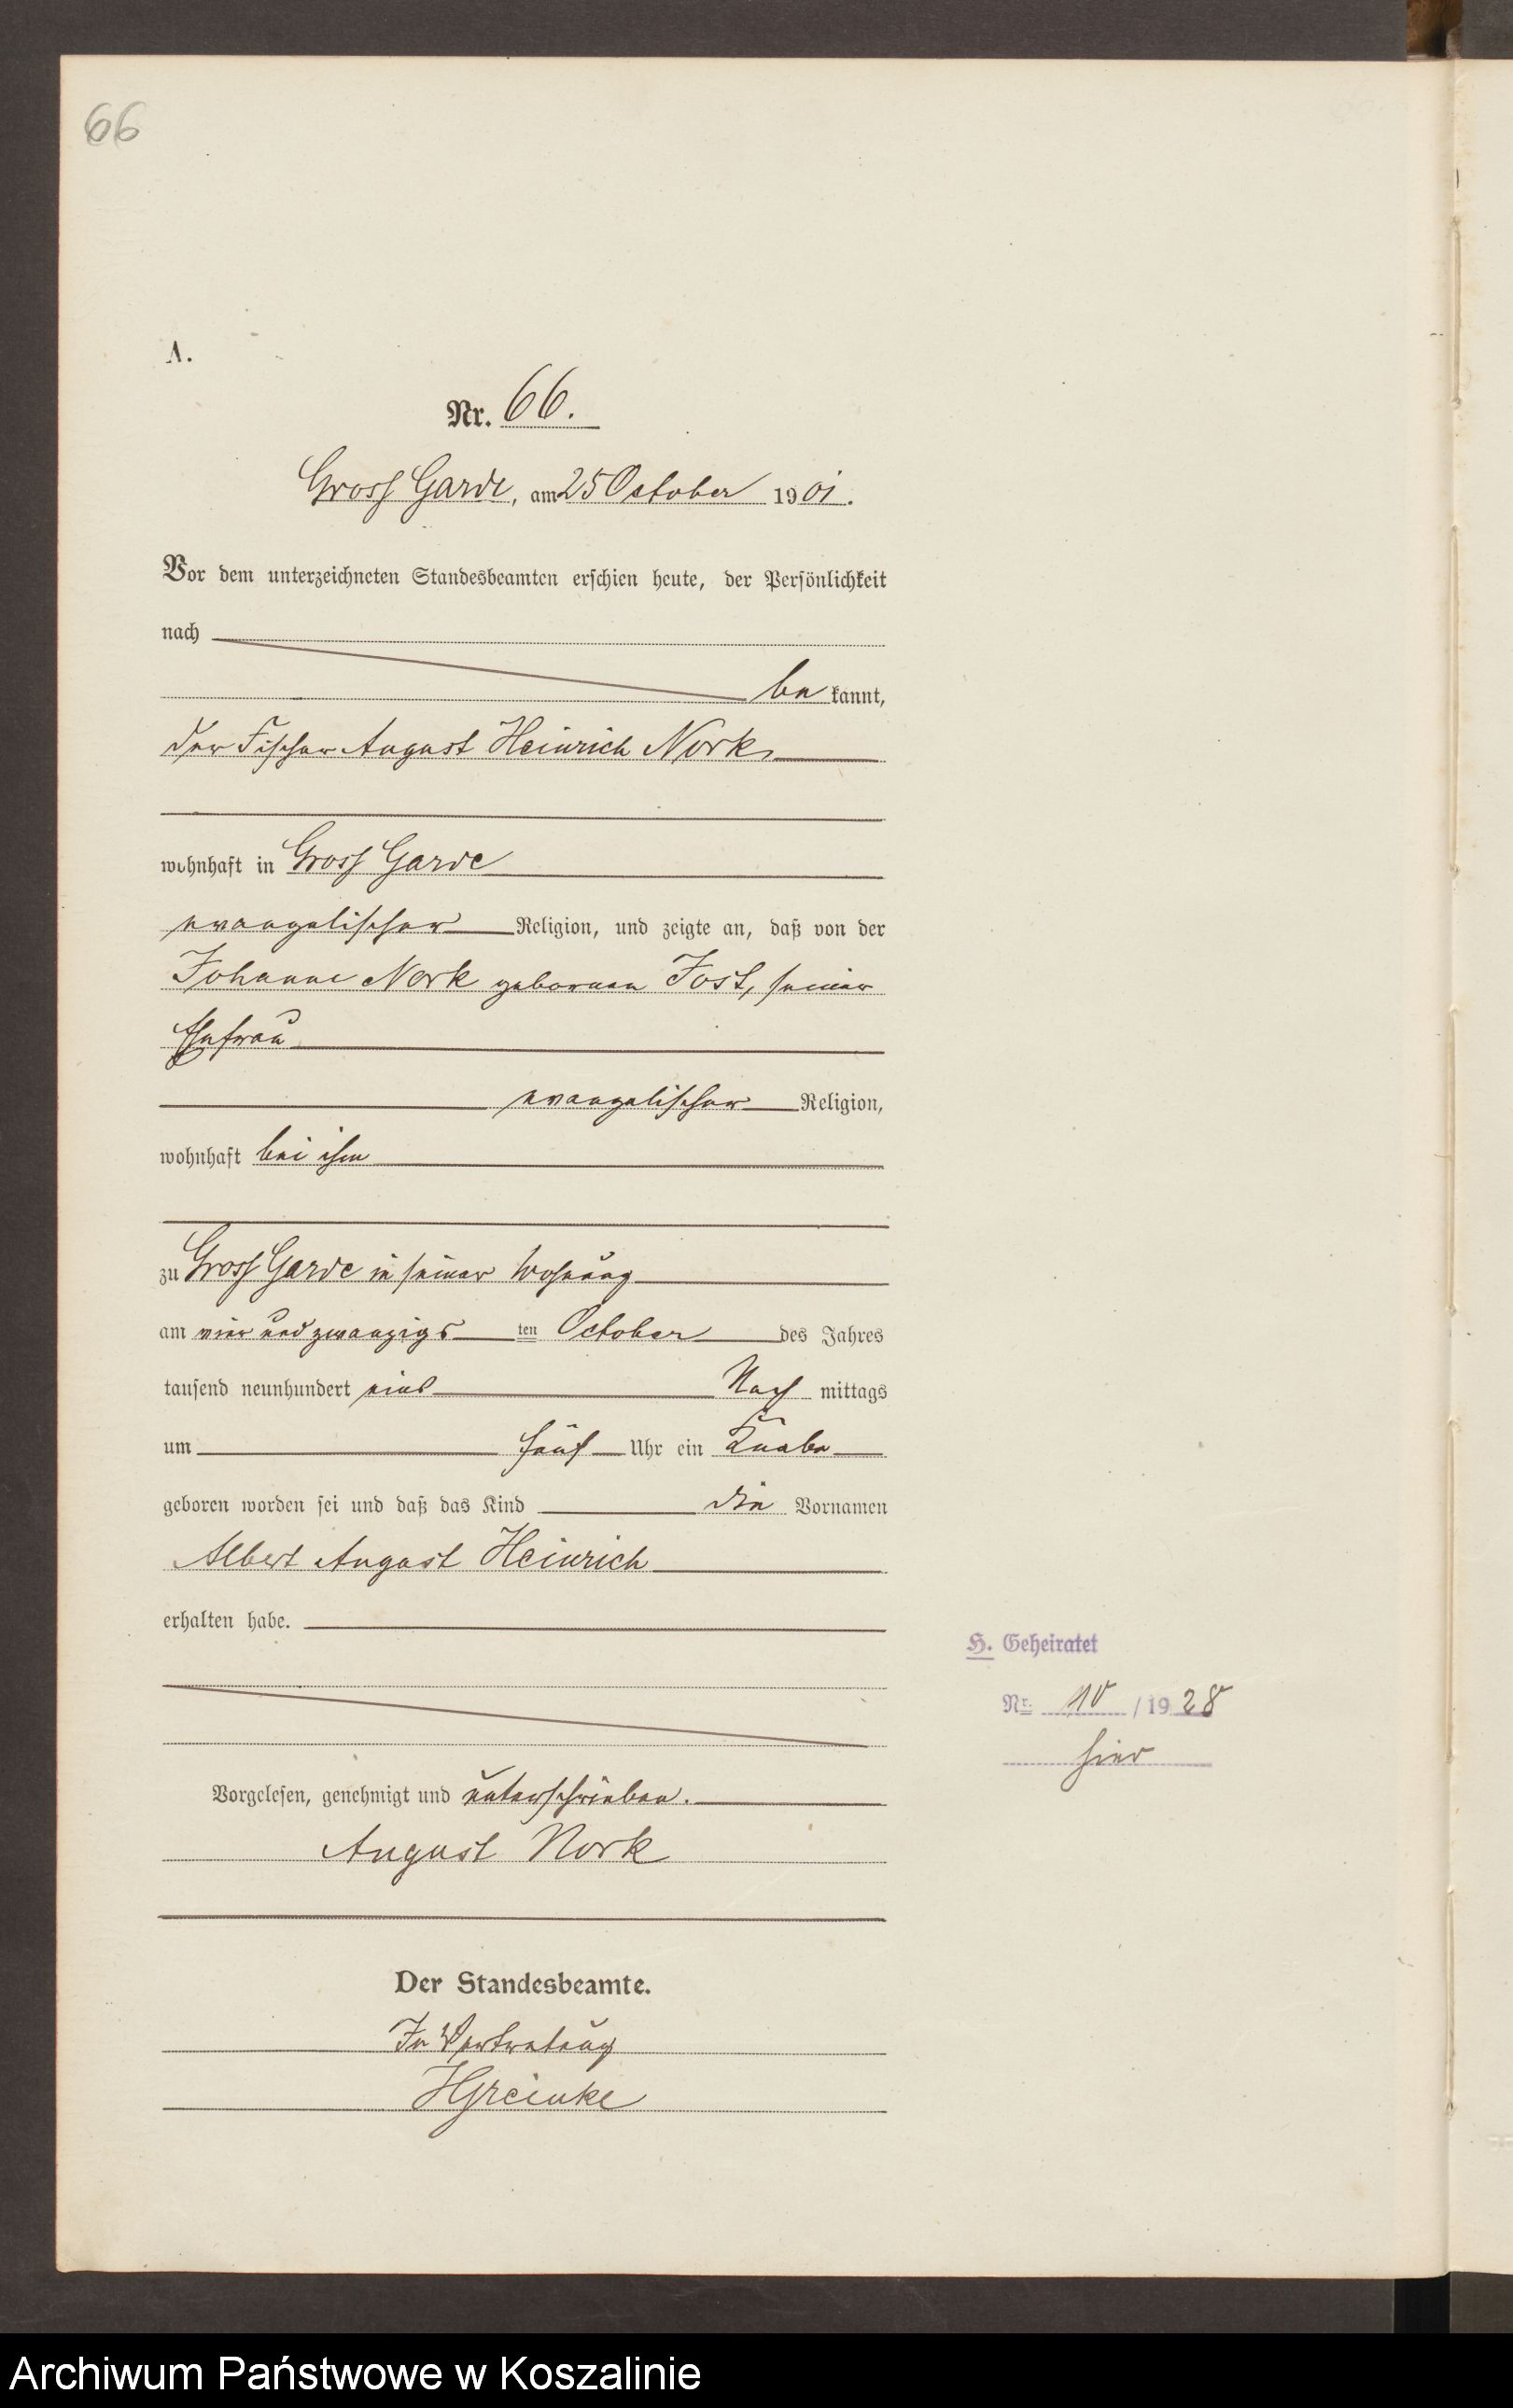 66
A.
Nr. 66.
Gross Garde, am 25 October 1901.
Vor dem unterzeichneten Standesbeamten erschien heute, der Persönlichkeit
nach
be kannt,
der Fischer August Heinrich Nork,
wohnhaft in Gross Garde
evangelischer Religion, und zeigte an, daß von der
Johanne Nork geborenen Jost, seiner
Ehefrau
evangelischer Religion,
wohnhaft bei ihm
zu Gross Garde in seiner Wohnung
am vier und zwanzigs ten October des Jahres
tausend neunhundert eins Nach mittags
um fünf Uhr ein Knabe
geboren worden sei und daß das Kind die Vornamen
Albert August Heinrich
erhalten habe.
H. Geheiratet
Nr. 10 / 1928
hier
Vorgelesen, genehmigt und unterschrieben.
August Nork
Der Standesbeamte.
In Vertretung
Archiwum Państwowe w Koszalinie